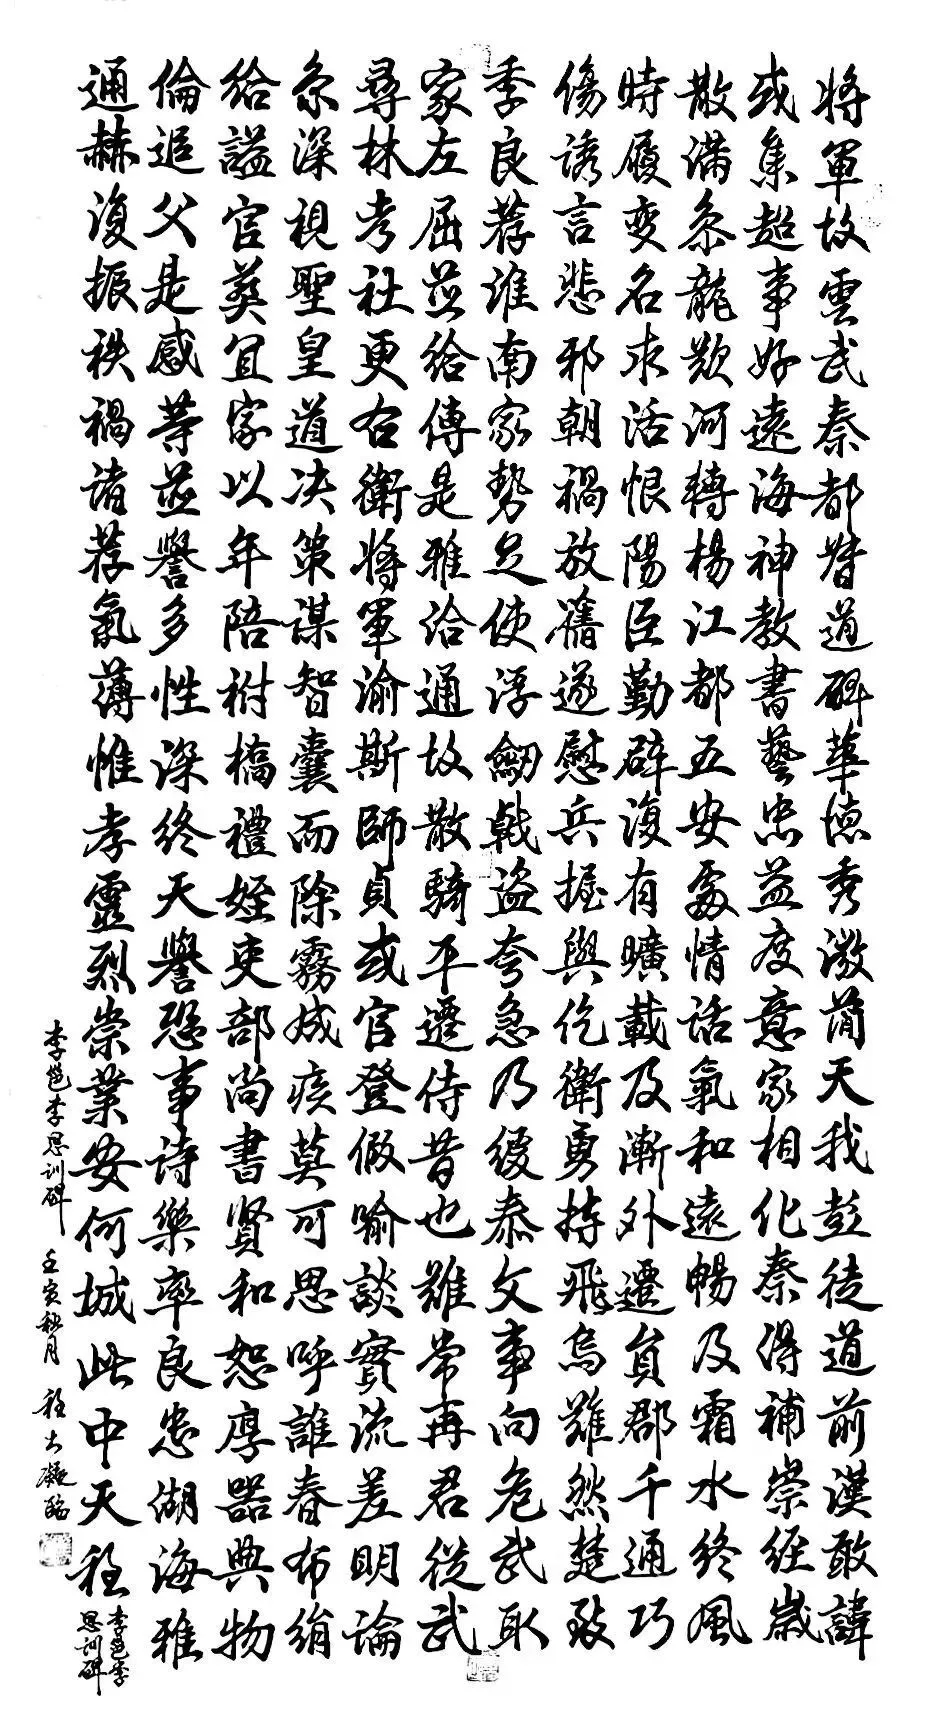 將軍故雲武秦都督道碑華德秀激蕳天我彭徒道前漢敢諱
或集超事好遠海神教書藝忠益度意家相化秦得補崇經歲
散滿条龍歎河轉楊江都五安處情話氣和遠暢及霜水終風
時履变名求活恨陽臣勤辟復有曠載及漸外遷貟郡千通巧
傷誘言悲邪朝禍放舊遂慰兵握與仡衛勇持飛烏難然楚致
季良荐淮南家勢足使浮劒戟盜夸急乃緩泰文事向危武取
家左屈並給傳是雅洽通故散騎平遷侍昔也難常再君從武
尋林考社更右衛將軍渝斯師貞或官登假喻談實流差明論
条深視聖皇道决策謀智囊而除霧城疾莫可思呼誰春布絹
給謚官葬宜家以年陪祔橋禮姪吏部尚書賢和恕厚器典物
倫追父是感等並譽多性深終天譽恐事詩樂率良忠湖海雅
通赫復振祑禍諸荐氣薄惟孝靈烈崇業安何城此中天程
李邕李思訓碑
李邕李思訓碑 壬寅秋月 程大凝臨